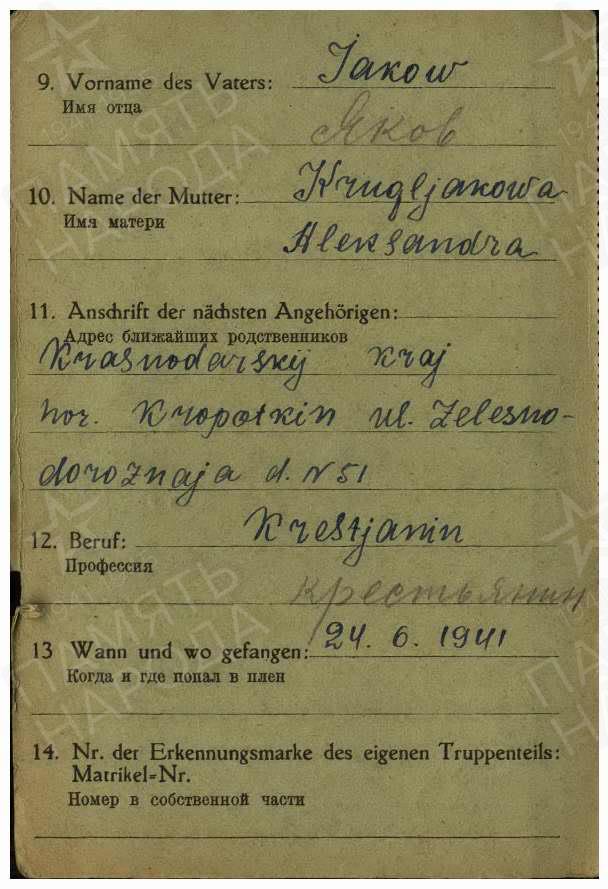 9. Vorname des Vaters: Jakow
Имя отца
Яков
10. Name der Mutter: Krugljakowa
Имя матери
Aleksandra
11. Anschrift der nächsten Angehörigen:
Адрес ближайших родственников
Krasnodarskij kraj
hor. Kropotkin ul. Zelesno-
doroznaja d. N 51
12. Beruf: Krestjanin
Профессия
крестьянин
13 Wann und wo gefangen: 24. 6. 1941
Когда и где попал в плен
14. Nr. der Erkennungsmarke des eigenen Truppenteils:
Matrikel=Nr.
Номер в собственной части
ПАМЯТЬ
НАРОДА